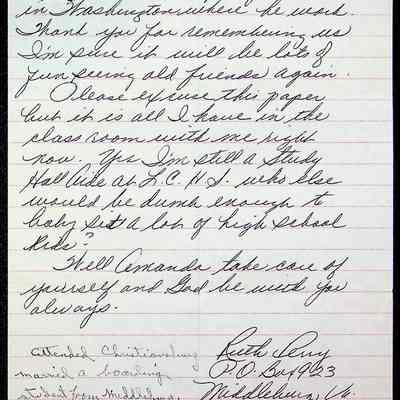 in Washington where he work.
Thank you for remembering us
I'm sure it will be lots of
fun seeing old friends again.
Please excuse this paper
but it is all I have in the
class room with me right
now. Yes I'm still a Study
Hall Aide at L.C.H.S. who else
would be dumb enough to
baby sit a lot of high school
kids?
Well Amanda take care of
yourself and God be with you
always.
Ruth Perry
P.O. Box 923
Middleburg, Va.
attended Christiansburg
married a boarding
student from Middleburg,